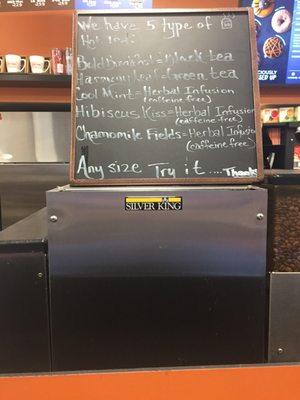 We have 5 type of
Hot tea:
Bold Breakfast = Black tea
Harmony Leaf = Green tea
Cool Mint = Herbal Infusion
(caffeine free)
Hibiscus Kiss = Herbal Infusion
(caffeine free)
Chamomile Fields = Herbal Infusion
(caffeine free)
Any size Try it .... Thank
SILVER KING